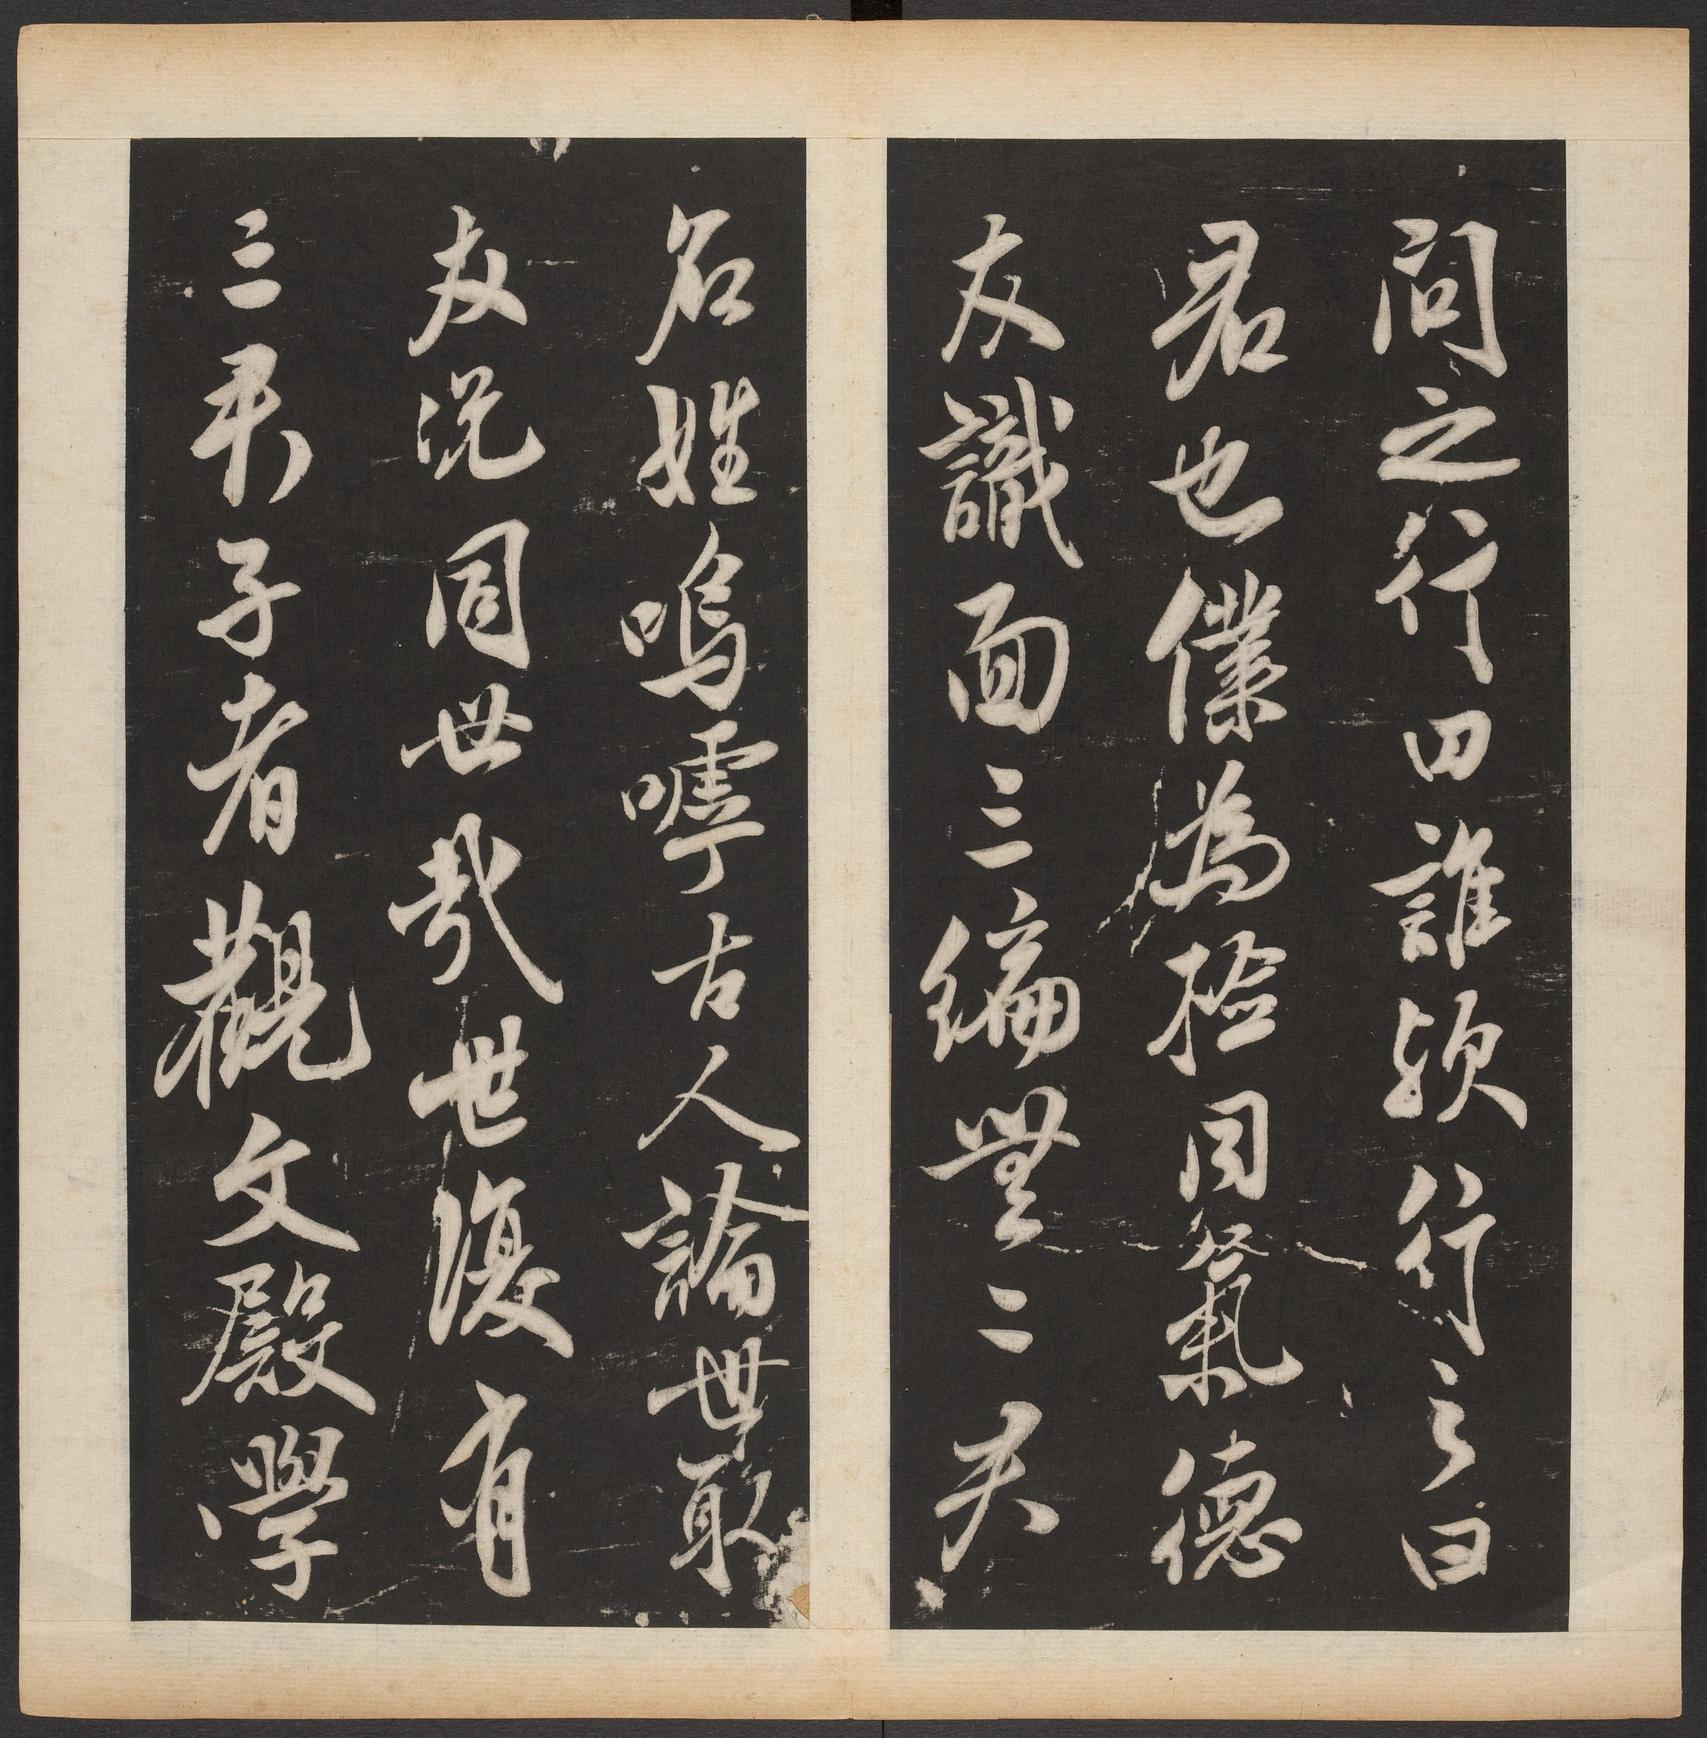 問之行曰誰歟行之曰
君也僕為撿同氣德
友識面三編無二失
名姓嗚嘑古人論世取
友況同世哉世復有
三子者觀文殿學